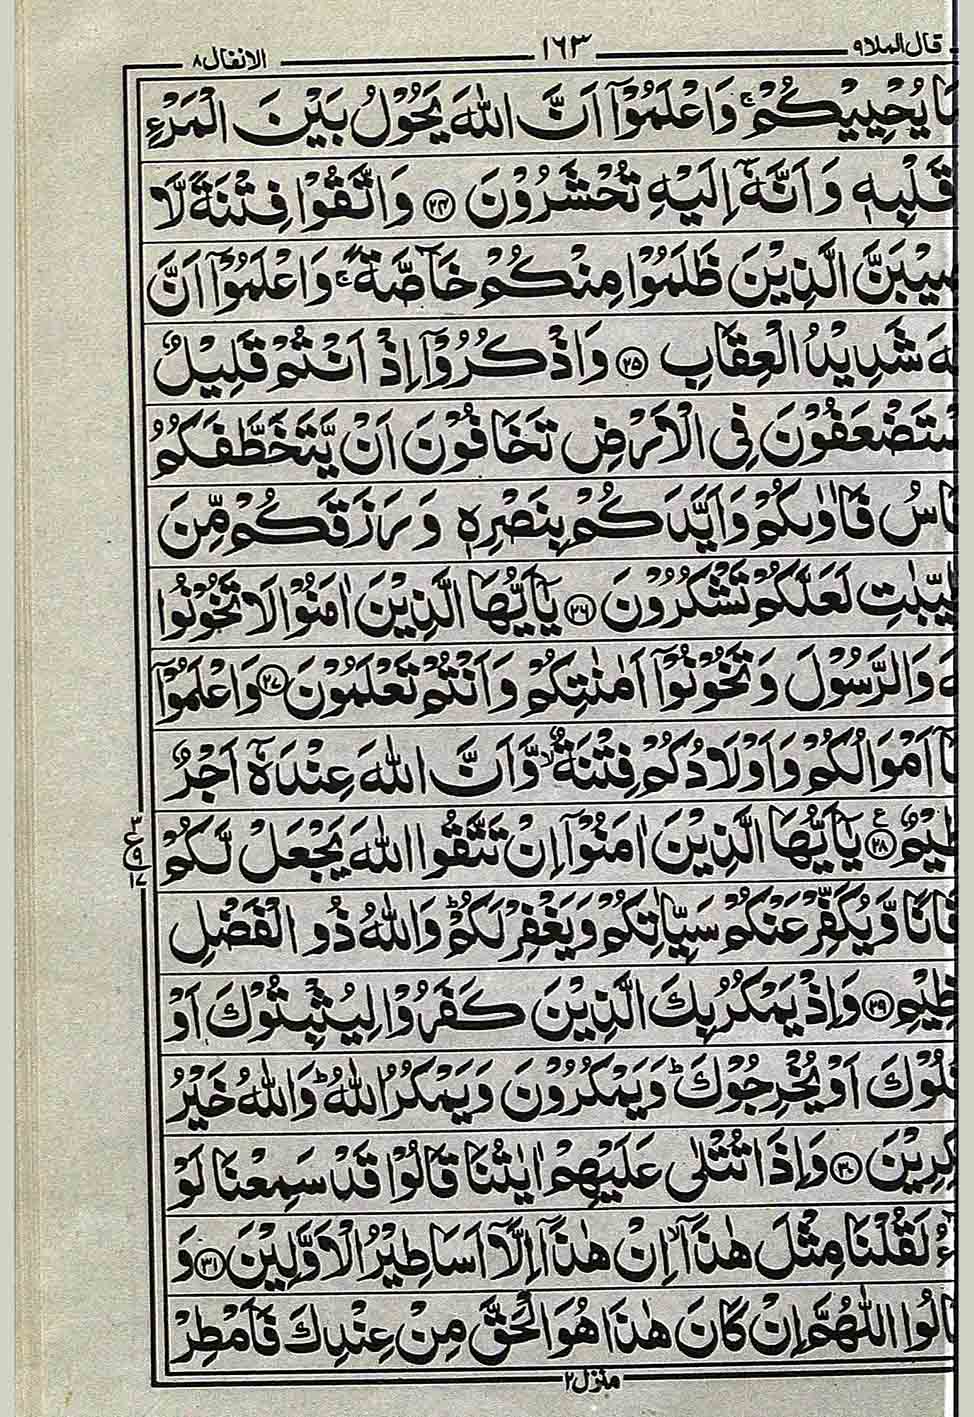 قال الملا۹ ۱۶۳ الانفال۸
يُحْيِيْكُمْ ۚ وَاعْلَمُوْۤا اَنَّ اللّٰهَ يَحُوْلُ بَيْنَ الْمَرْءِ
قَلْبِهٖ وَاَنَّهٗۤ اِلَيْهِ تُحْشَرُوْنَ ۝۲۴ وَاتَّقُوْا فِتْنَةً لَّا
صِيْبَنَّ الَّذِيْنَ ظَلَمُوْا مِنْكُمْ خَآصَّةً ۚ وَاعْلَمُوْۤا اَنَّ
هَ شَدِيْدُ الْعِقَابِ ۝۲۵ وَاذْكُرُوْۤا اِذْ اَنْتُمْ قَلِيْلٌ
سْتَضْعَفُوْنَ فِى الْاَرْضِ تَخَافُوْنَ اَنْ يَّتَخَطَّفَكُمُ
اسُ فَاٰوٰىكُمْ وَاَيَّدَكُمْ بِنَصْرِهٖ وَرَزَقَكُمْ مِّنَ
يِّبٰتِ لَعَلَّكُمْ تَشْكُرُوْنَ ۝۲۶ يٰۤاَيُّهَا الَّذِيْنَ اٰمَنُوْا لَا تَخُوْنُوا
هَ وَالرَّسُوْلَ وَتَخُوْنُوْۤا اَمٰنٰتِكُمْ وَاَنْتُمْ تَعْلَمُوْنَ ۝۲۷ وَاعْلَمُوْۤا
اَمْوَالُكُمْ وَاَوْلَادُكُمْ فِتْنَةٌ ۙ وَّاَنَّ اللّٰهَ عِنْدَهٗۤ اَجْرٌ
ظِيْمٌ ۝۲۸ ع يٰۤاَيُّهَا الَّذِيْنَ اٰمَنُوْۤا اِنْ تَتَّقُوا اللّٰهَ يَجْعَلْ لَّكُمْ
۳
ع ۹
۱۷
قَانًا وَّيُكَفِّرْ عَنْكُمْ سَيِّاٰتِكُمْ وَيَغْفِرْ لَكُمْ ؕ وَاللّٰهُ ذُو الْفَضْلِ
ظِيْمِ ۝۲۹ وَاِذْ يَمْكُرُ بِكَ الَّذِيْنَ كَفَرُوْا لِيُثْبِتُوْكَ اَوْ
تُلُوْكَ اَوْ يُخْرِجُوْكَ ؕ وَيَمْكُرُوْنَ وَيَمْكُرُ اللّٰهُ ؕ وَاللّٰهُ خَيْرُ
كِرِيْنَ ۝۳۰ وَاِذَا تُتْلٰى عَلَيْهِمْ اٰيٰتُنَا قَالُوْا قَدْ سَمِعْنَا لَوْ
ءُ لَقُلْنَا مِثْلَ هٰذَاۤ ۙ اِنْ هٰذَاۤ اِلَّاۤ اَسَاطِيْرُ الْاَوَّلِيْنَ ۝۳۱ وَ
الُوا اللّٰهُمَّ اِنْ كَانَ هٰذَا هُوَ الْحَقَّ مِنْ عِنْدِكَ فَاَمْطِرْ
منزل۲